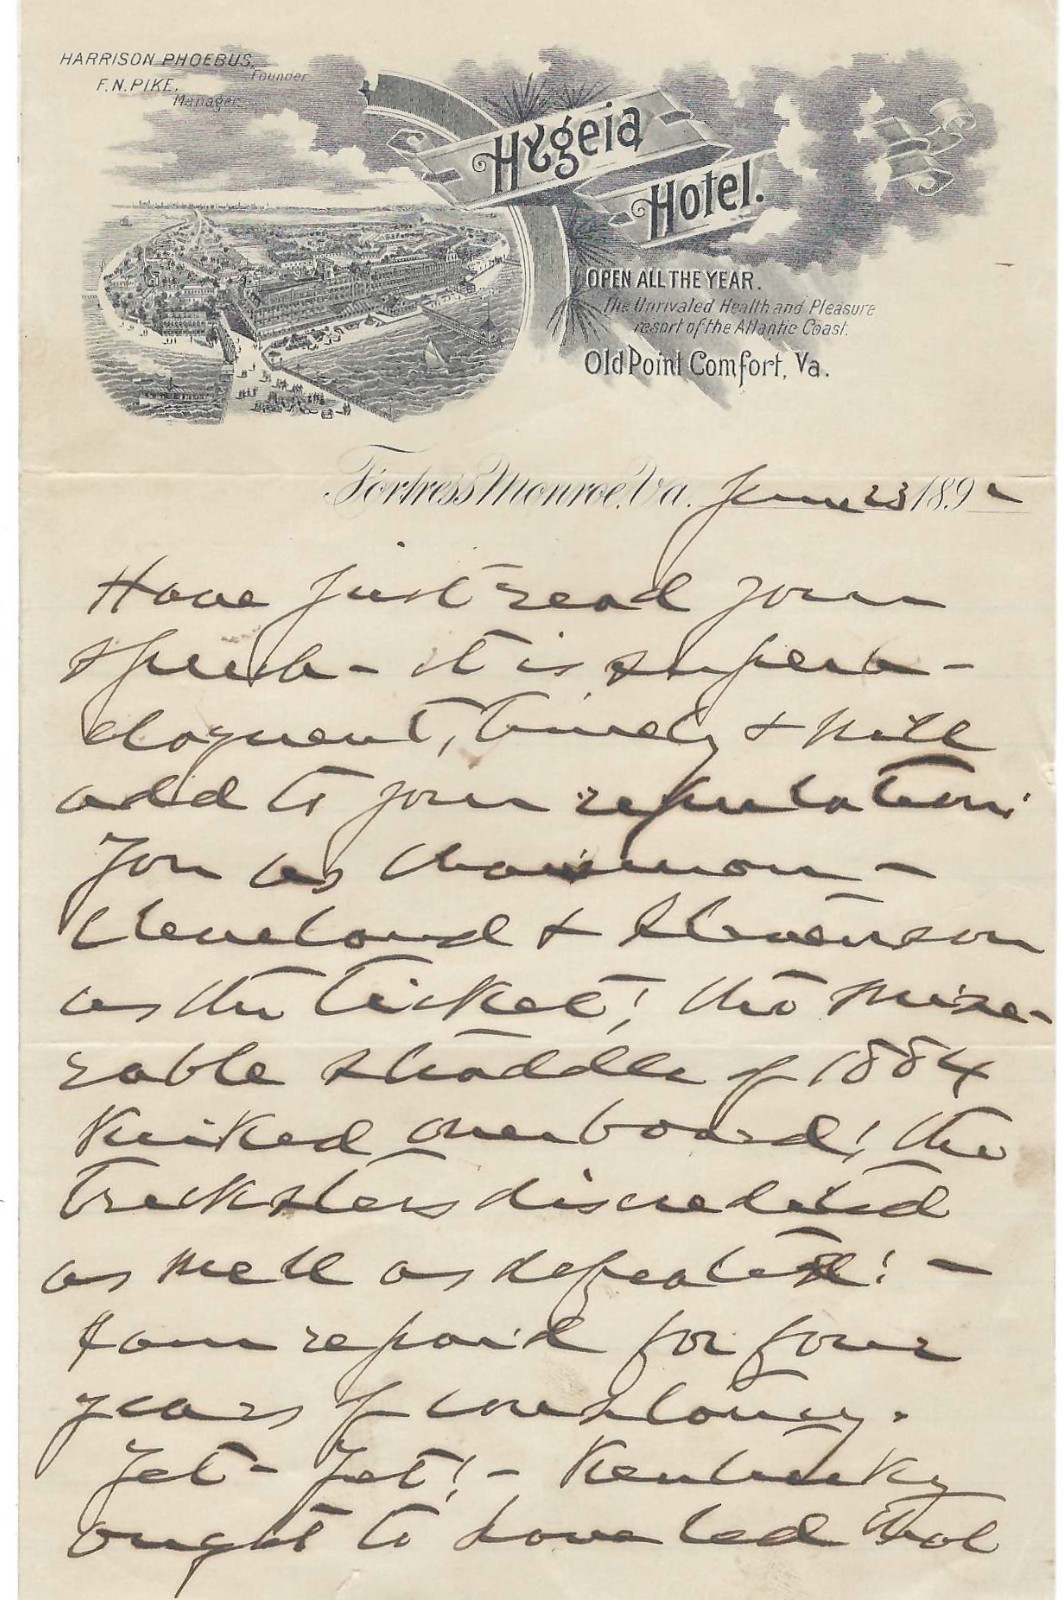 HARRISON PHOEBUS,
Founder
F.N. PIKE,
Manager.
Hygeia
Hotel.
OPEN ALL THE YEAR.
The Unrivaled Health and Pleasure
resort of the Atlantic Coast.
Old Point Comfort, Va.
Fortress Monroe, Va. June 23 1892
Have just read your
speech - it is superb -
eloquent, timely & will
add to your reputation:
You as chairman -
Cleveland & Stevenson
as the ticket! the mise-
rable straddle of 1884
kicked overboard! the
tricksters discredited
as well as defeated! -
I am repaid for four
years of constancy.
Yet - Yet! - Kentucky
ought to have led that